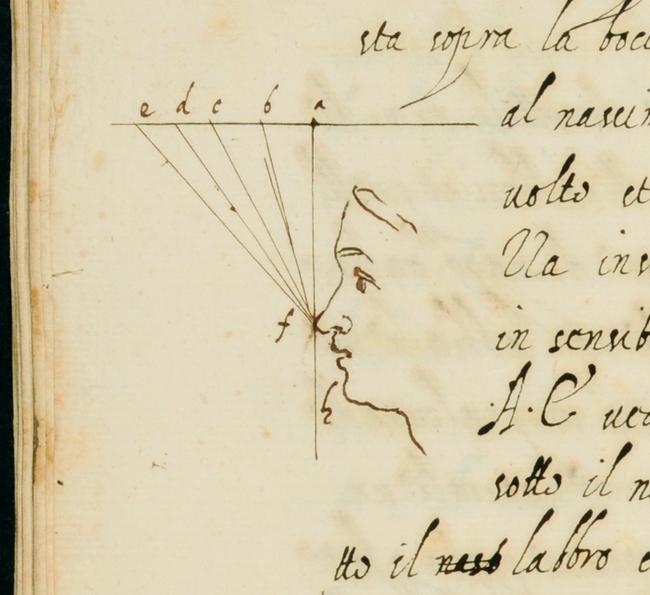 sta sopra la bocc
e d c b a
al nasci
volto et
Una inv
in sensib
f
A. C ved
h
sotto il n
tto il naso labbro e